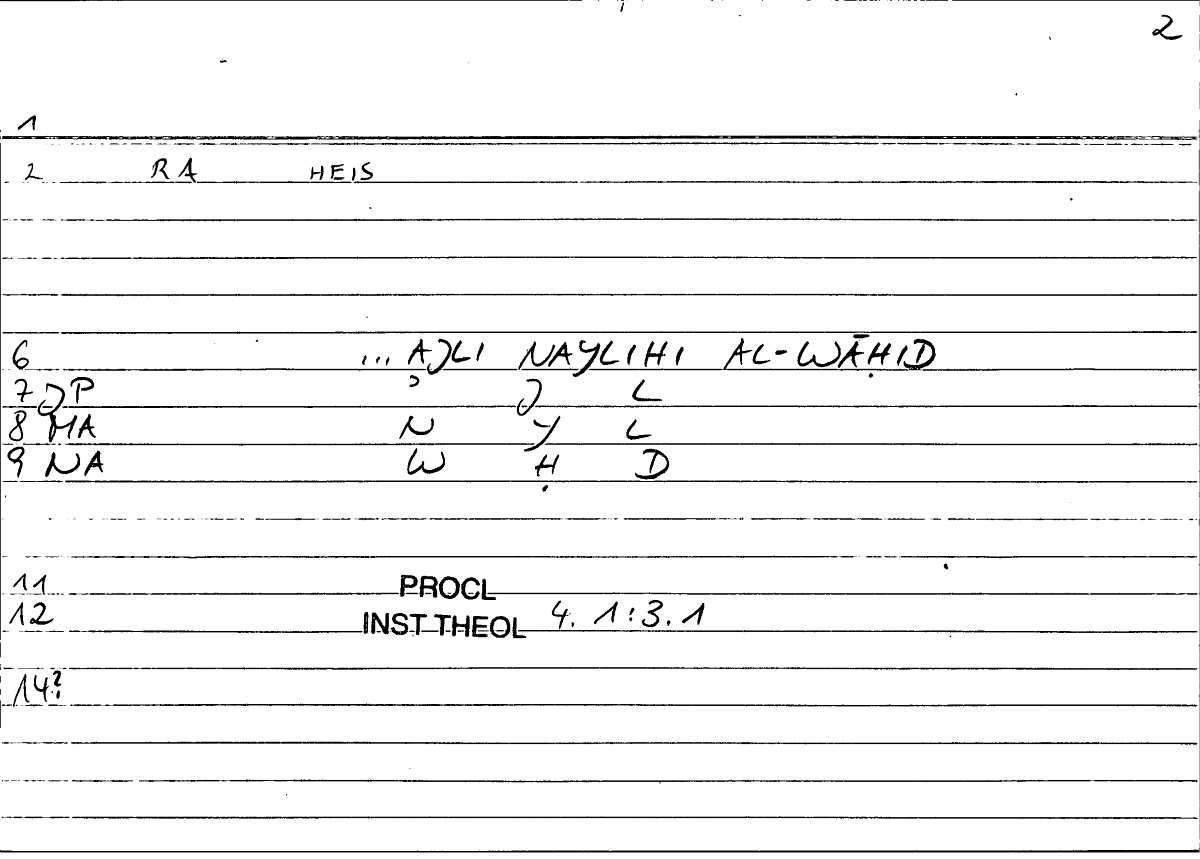 2
1
2 RA HEIS
6 ... AJLI NAYLIHI AL-WĀḤID
7 JP ʾ J L
8 MA N Y L
9 NA W Ḥ D
11 PROCL
12 INST THEOL 4. 1:3.1
14?